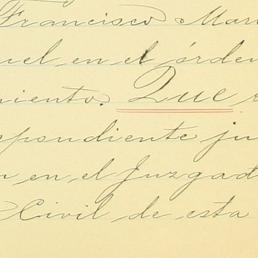 Francisco Mar
uel en el órden
miento. Que
spondiente ju
en el Juzgad
Civil de esta